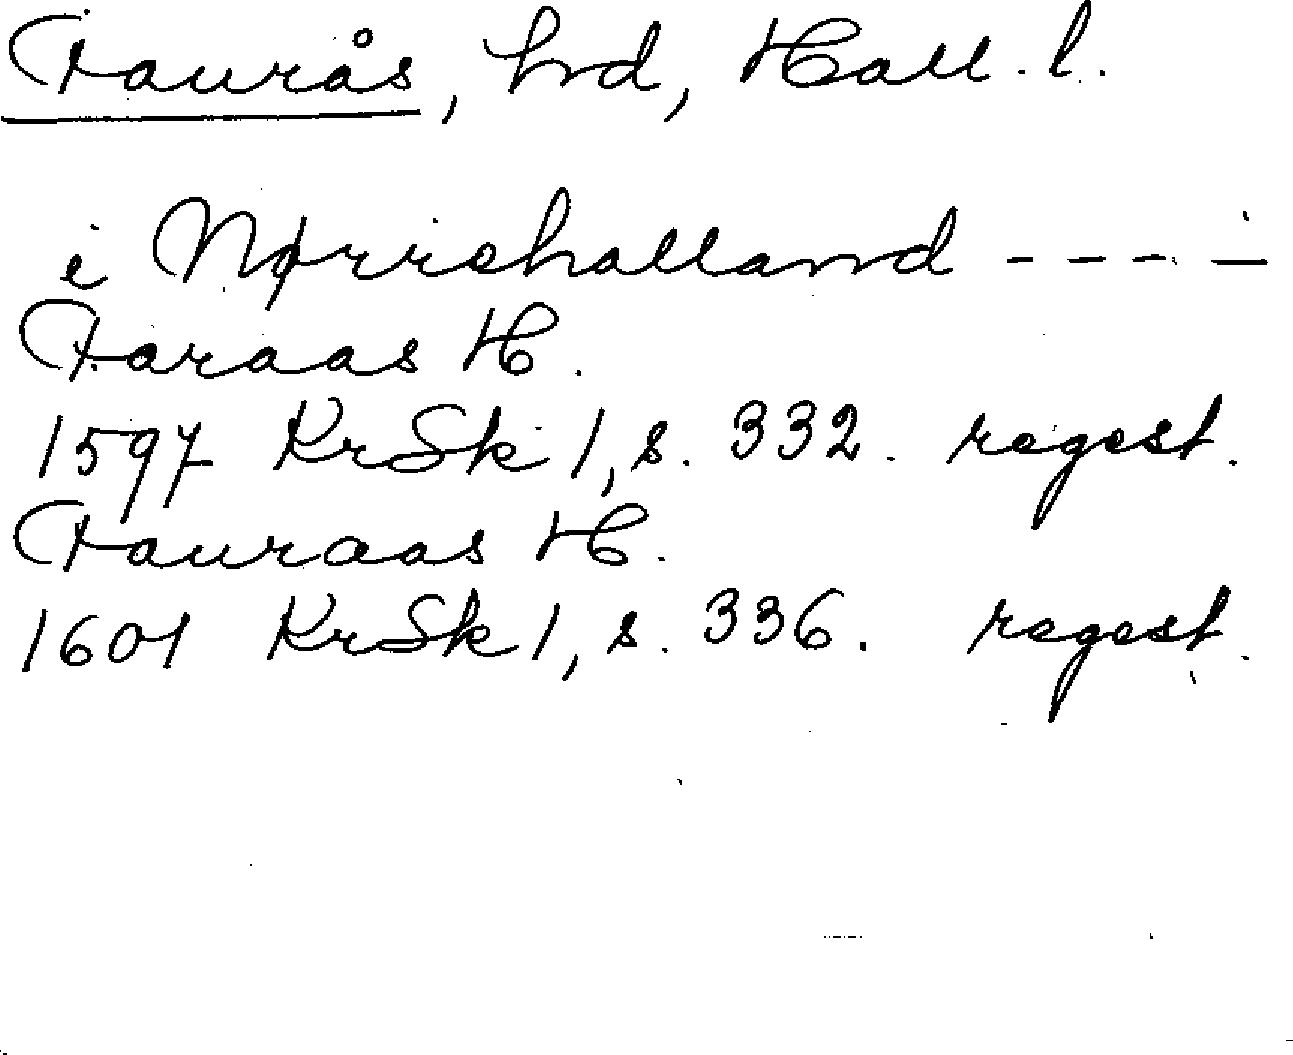 Faurås, hrd, Hall. l.
i Nørrehalland - - - - -
Faraas H.
1597 KrSk 1, s. 332. regest.
Fauraas H.
1601 KrSk 1, s. 336. regest.